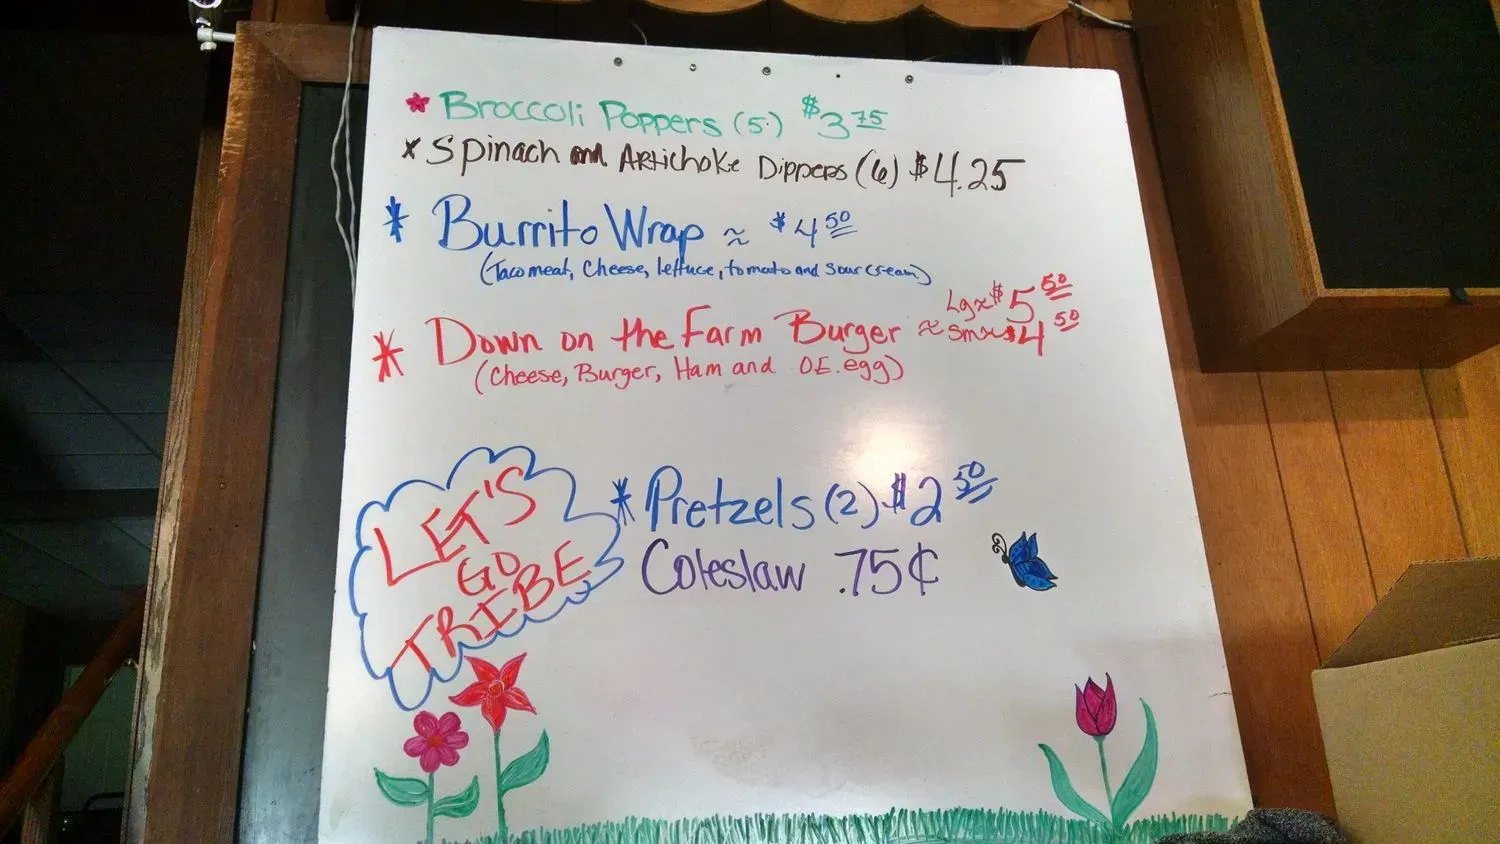 Broccoli Poppers (5) $3.75
Spinach and Artichoke Dippers (6) $4.25
Burrito Wrap ≈ $4.50
(Taco meat, Cheese, lettuce, tomato and sour cream)
Down on the Farm Burger ≈ Lg ≈ $5.50
Sm ≈ $4.50
(Cheese, Burger, Ham and O.E. egg)
LET'S
GO
TRIBE
Pretzels (2) $2.50
Coleslaw .75¢